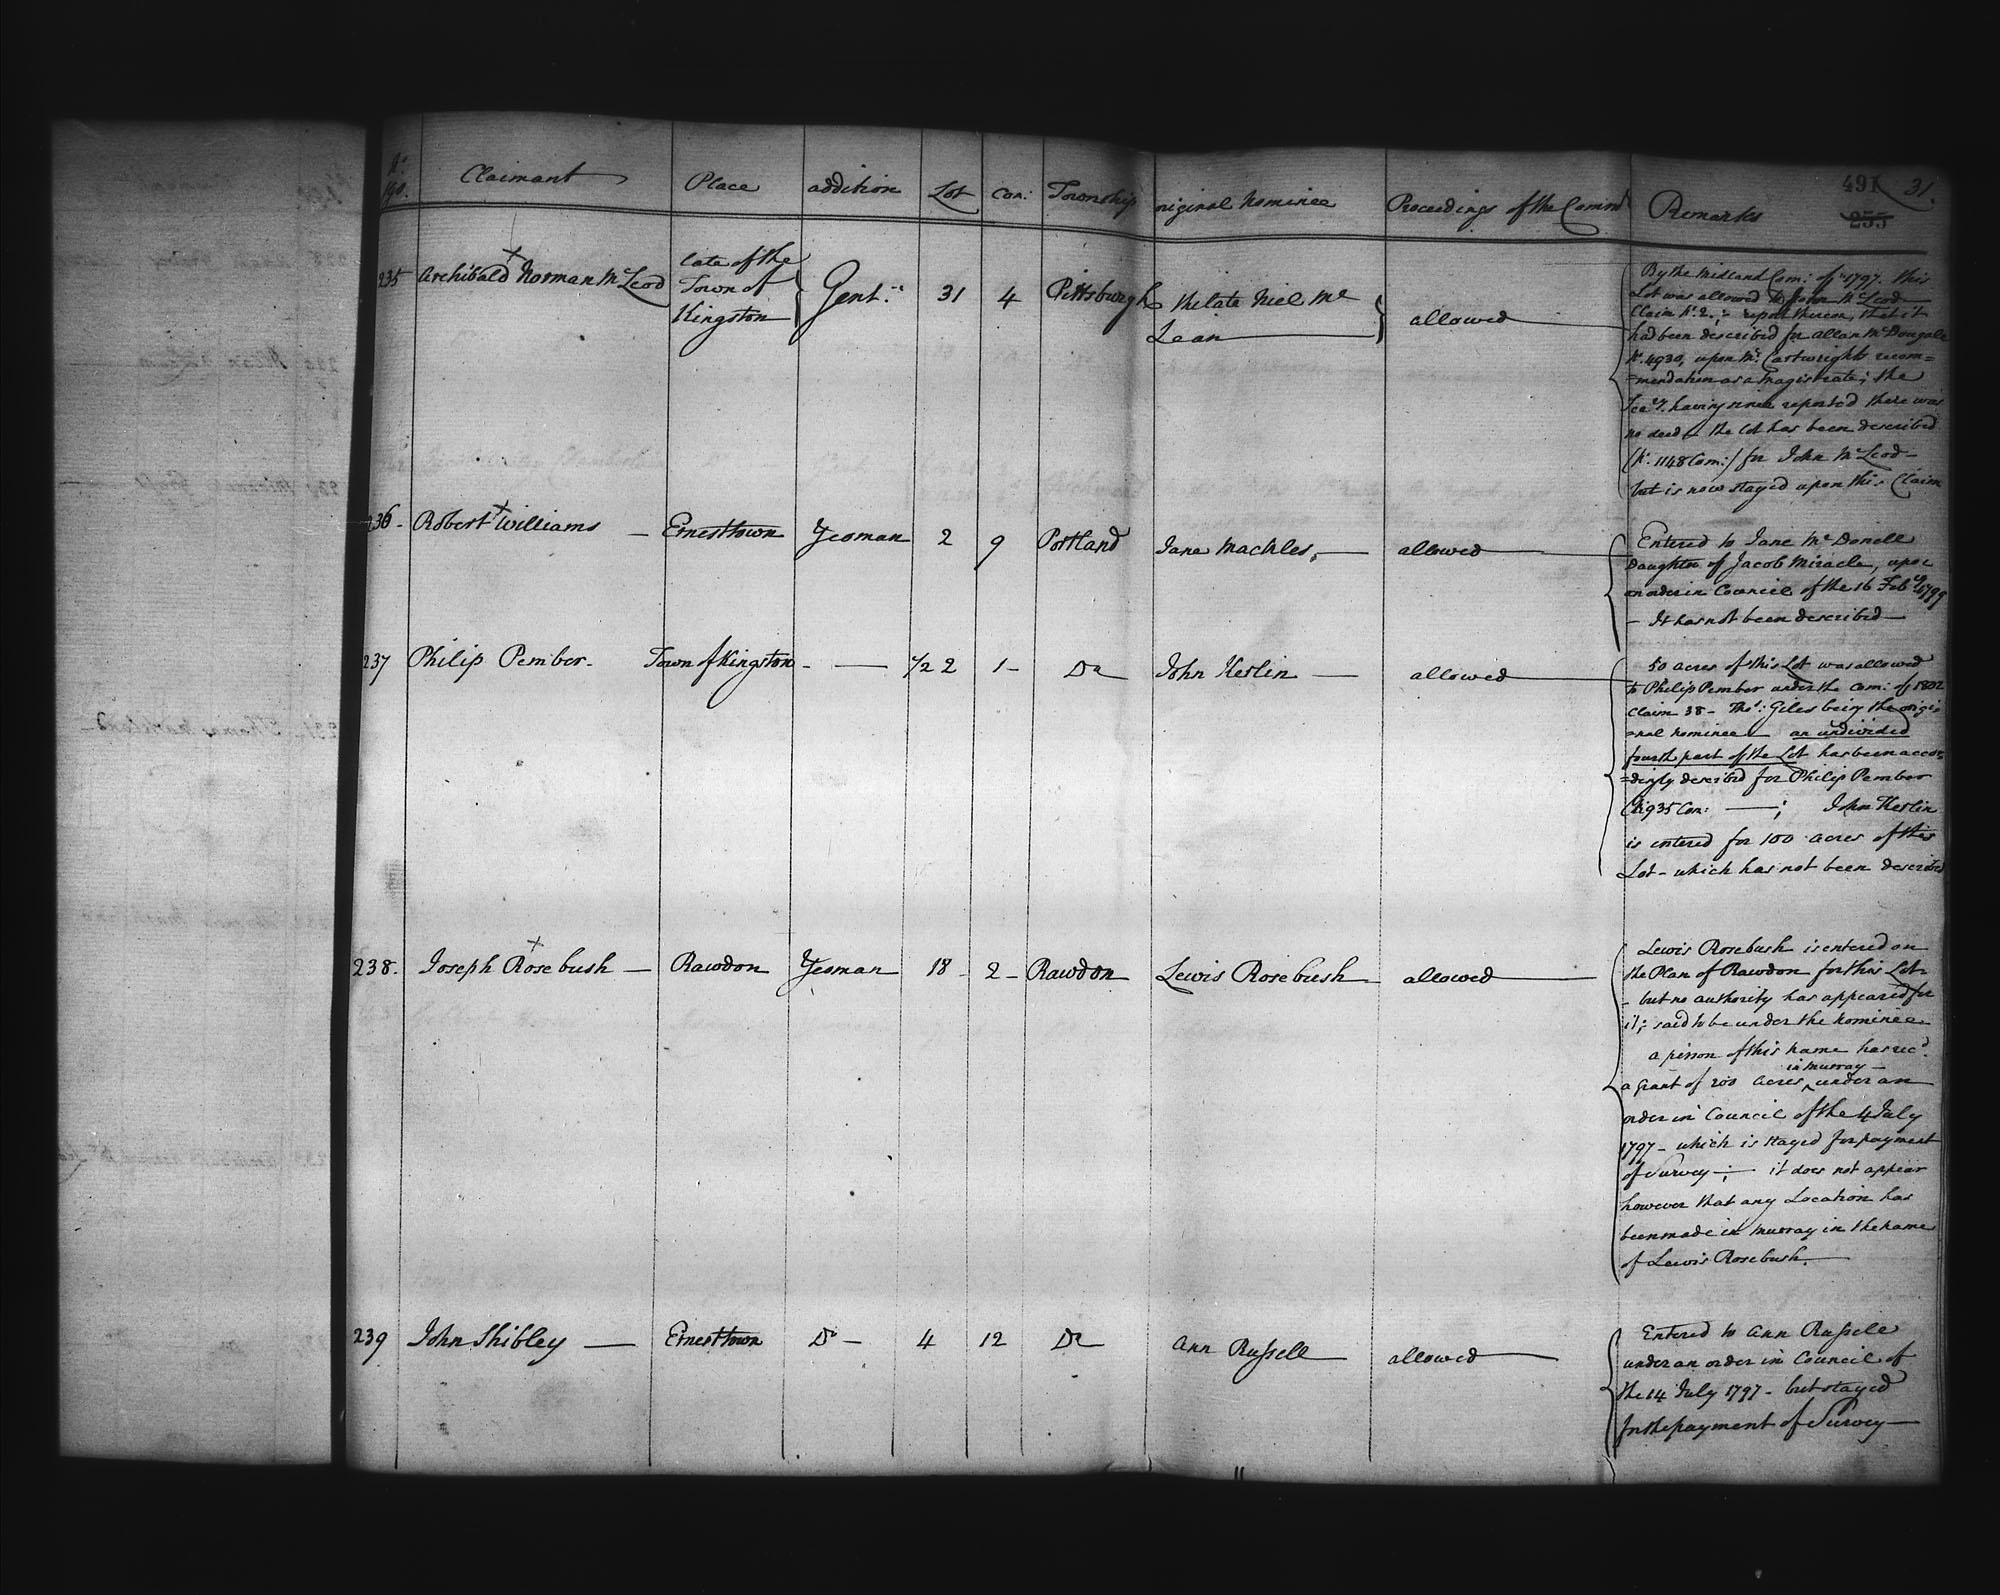 491 31.
255
No. 190. Claimant Place addition Lot Con: Township original Nominee Proceedings of the Commrs Remarks
235 Archibald Norman McLeod late of the Town of Kingston Gent: 31 4 Pittsburgh the late Niel Mc Lean allowed
By the Midland Com: of 1797. this
Lot was allowed to John McLeod
Claim No. 2.; report thereon, that it
had been described for Allan McDougale
No. 4930, upon Mr. Cartwrights recom=
=mendation as a Magistrate; the
Secy. having since reported there was
no deed - the lot has been described
(No. 1148 Com:) for John McLeod -
but is now stayed upon this Claim
236 - Robert Williams - Ernesttown Yeoman 2 9 Portland Jane Mackles, - allowed
Entered to Jane McDonell
Daughter of Jacob Miracle, upon
an order in Council of the 16 Feby 1799
- It has not been described -
237 Philip Pember - Town of Kingston - - 1/2 2 1 - Do John Keslin - allowed
50 acres of this Lot was allowed
to Philip Pember under the Com: of 1802
Claim 38 - Thos: Giles being the origi=
=nal nominee - an undivided
fourth part of the Lot has been accor=
=dingly described for Philip Pember
(No. 935 Con: - ; John Keslin
is entered for 100 acres of this
Lot - which has not been described
238. Joseph Rosebush - Rawdon Yeoman 18 - 2 - Rawdon Lewis Rosebush allowed
Lewis Rosebush is entered on
the Plan of Rawdon for this Lot
- but no authority has appeared for
it; said to be under the nominee
a person of this name has recd.
in Murray -
a grant of 200 acres ^ under an
order in Council of the 4 July
1797 - which is stayed for payment
of Survey - ; it does not appear
however that any Location has
been made in Murray in the name
of Lewis Rosebush.
239 John Shibley - Ernesttown Do - 4 12 Do Ann Russell allowed
Entered to Ann Russell
under an order in Council of
the 14 July 1797 - but stayed
for the payment of Survey -